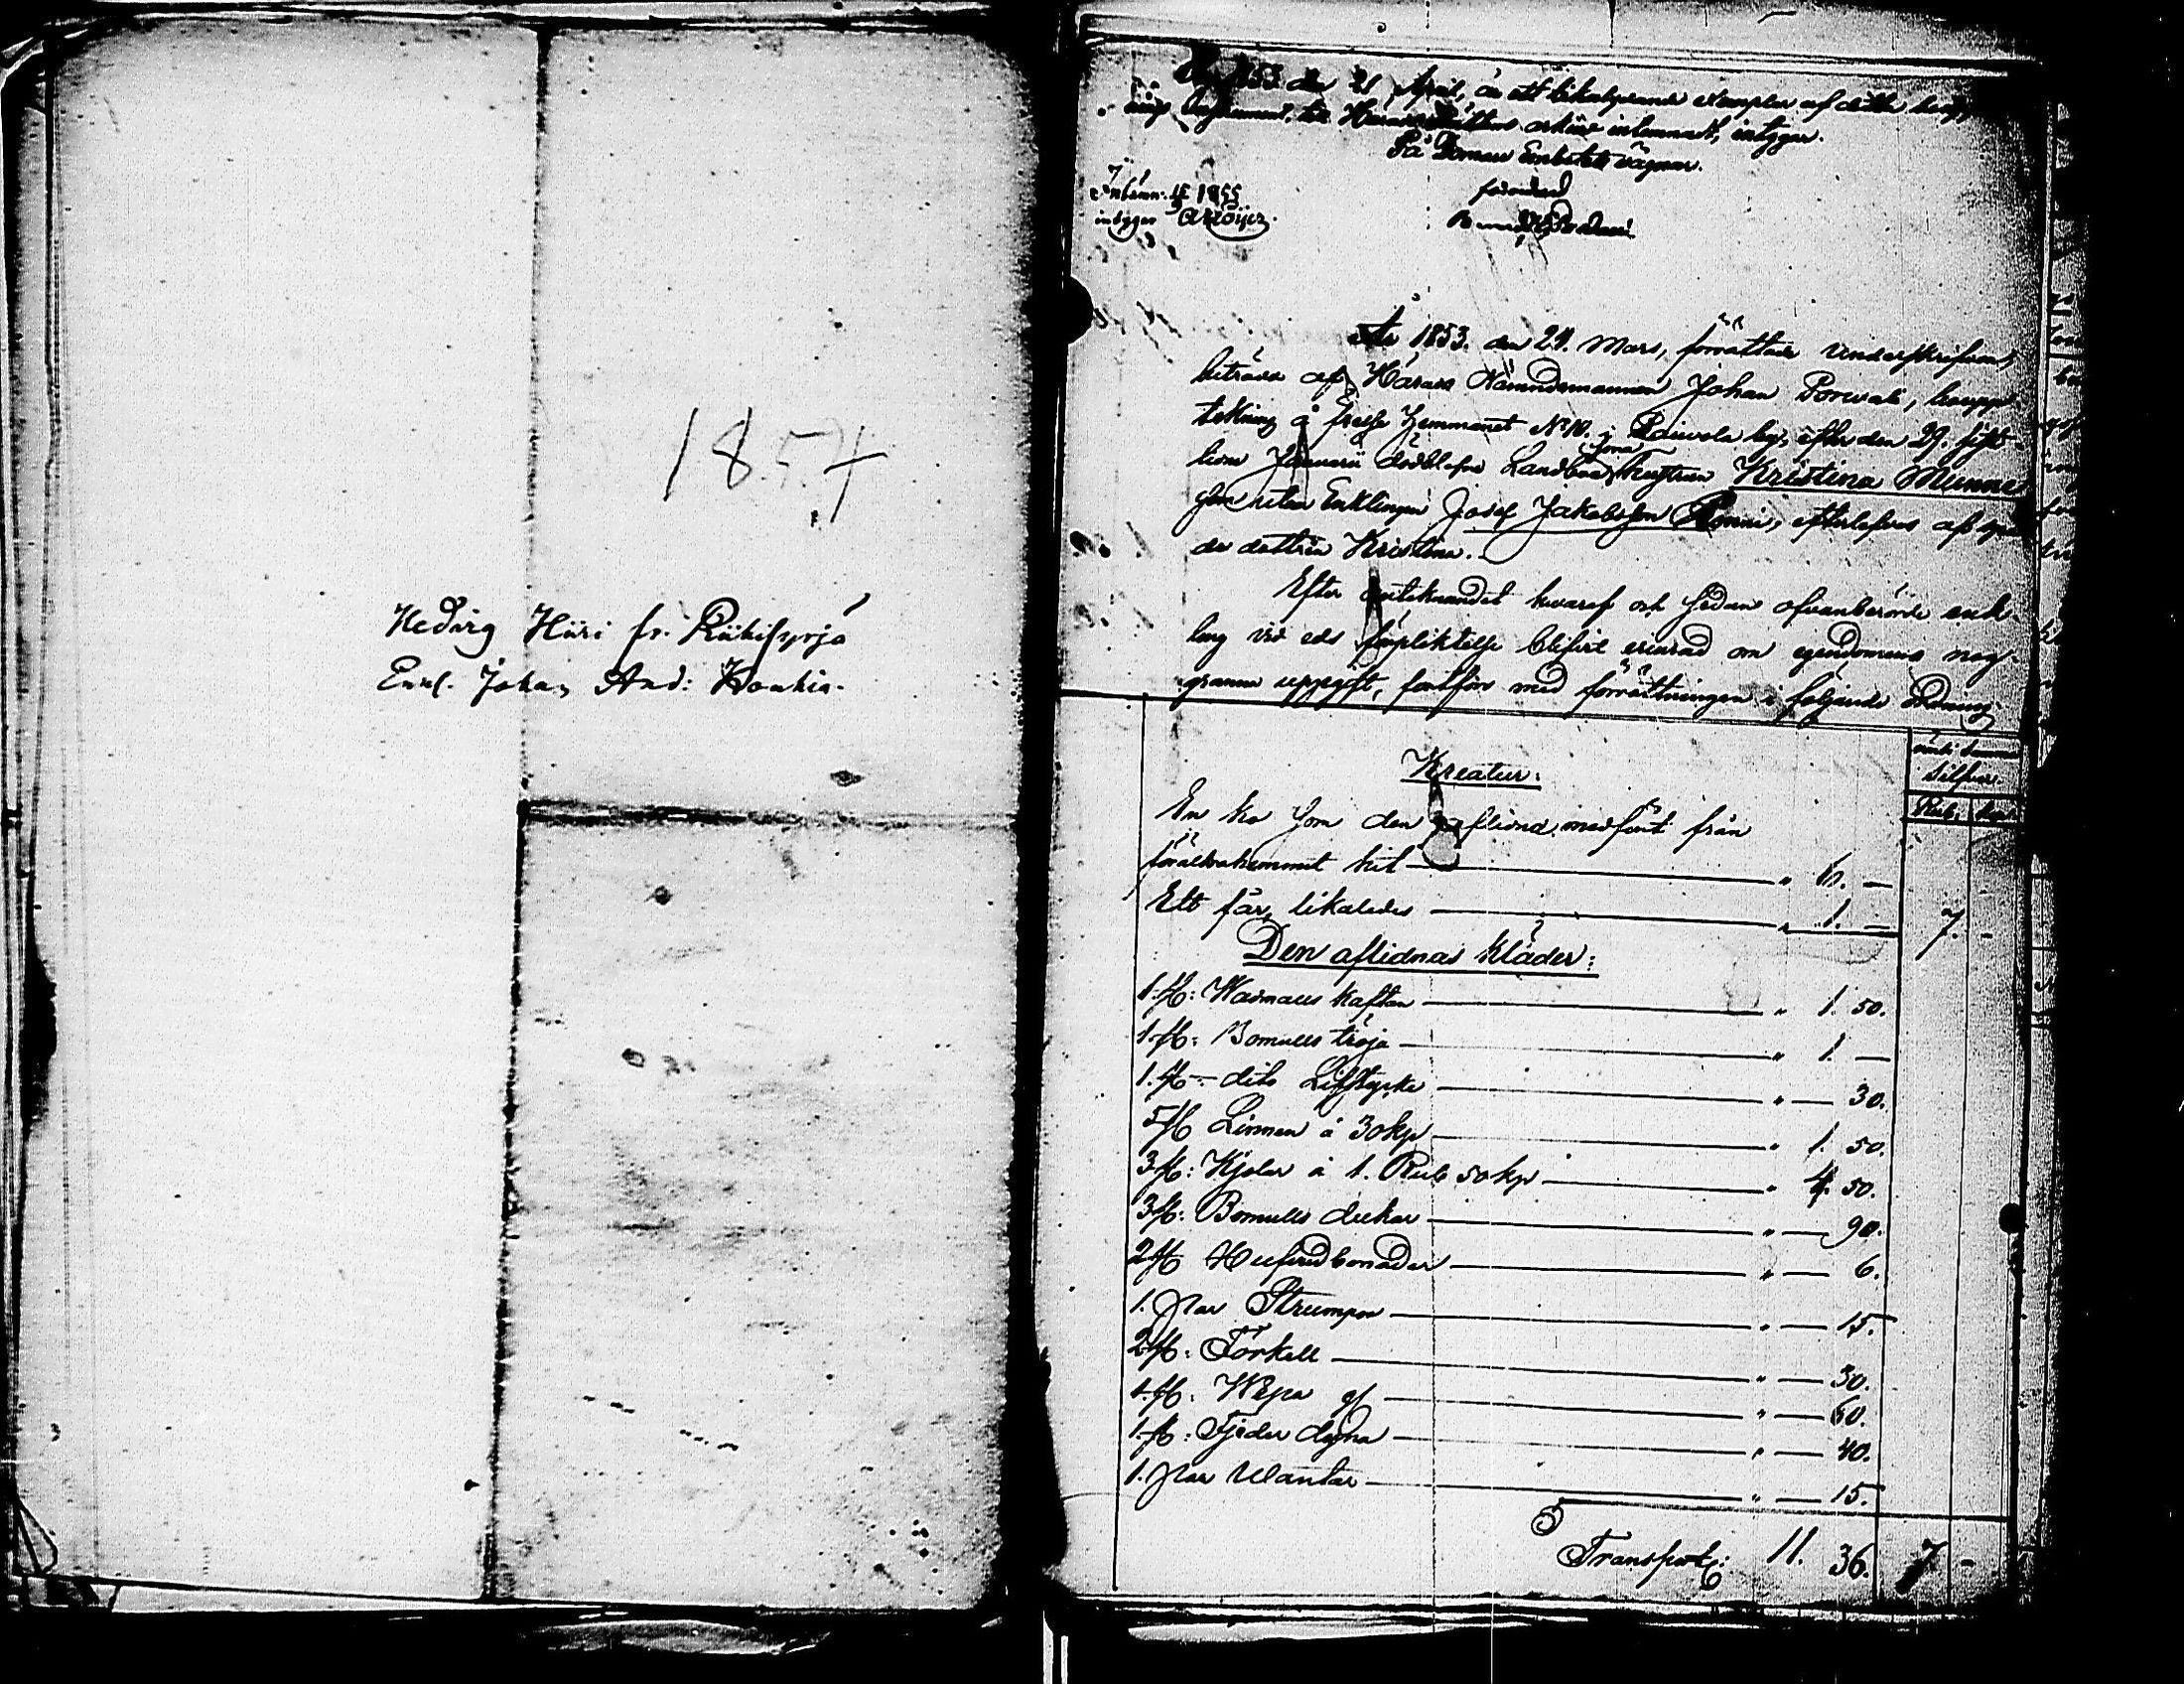 1854
Hedvig Hiiri fr. Riihisyrjä
Enkl. Johan And: Konkia.
1853 den 21 April, är ett likalydande exemplar af detta
till Härads Rättens arkiv inlemnadt, intygar.
På Domare Embetets vägnar.
Inlemn. 1855
intygar
År 1853. den 29. Mars, förrättade Underskrifven,
biträdd af Härads Nämndemannen Johan Porvali, bouppt
tekning å frelse Hemmanet No 10. i Raivola by, efter den 29. sist-
lidne Januarii dödblefne Landbo Hustrun Kristina Munne
som utom Enklingen Josef Jakobsson Ronni, efterlefves af spä
da dottren Kristina.
Efter antecknandet hvaraf och sedan ofvanberörde enk
ling vid eds förpliktelse blifvit erinrad om egendomens nog-
granna uppgift, fortfor med förrättningen i följande Ordning
Silfver.
Kreatur: Rub. kop.
En ko som den aflidna medfört från
föräldrahemmet hit " 6. —
Ett får, likaledes " 1. — 7. -
Den aflidnas kläder:
1. st: Wadmals kaftan " 1. 50.
1. st: Bomulls tröja " 1. —
1. st- dito Lifstycke " — 30.
5 st Linnen à 30 kp " 1. 50.
3 st: Kjolar à 1. Rub 50 kp " 4. 50.
3 st: Bomulls dukar " — 90.
2 st Hufvudbonader " — 6.
1. Par Strumpor " — 15.
2 st: Förkell " — 30.
1. st: Wepa " — 60.
1. st: Fjeder dyna " — 40.
1. Par Wantar " — 15.
Transport: 11. 36. 7 -